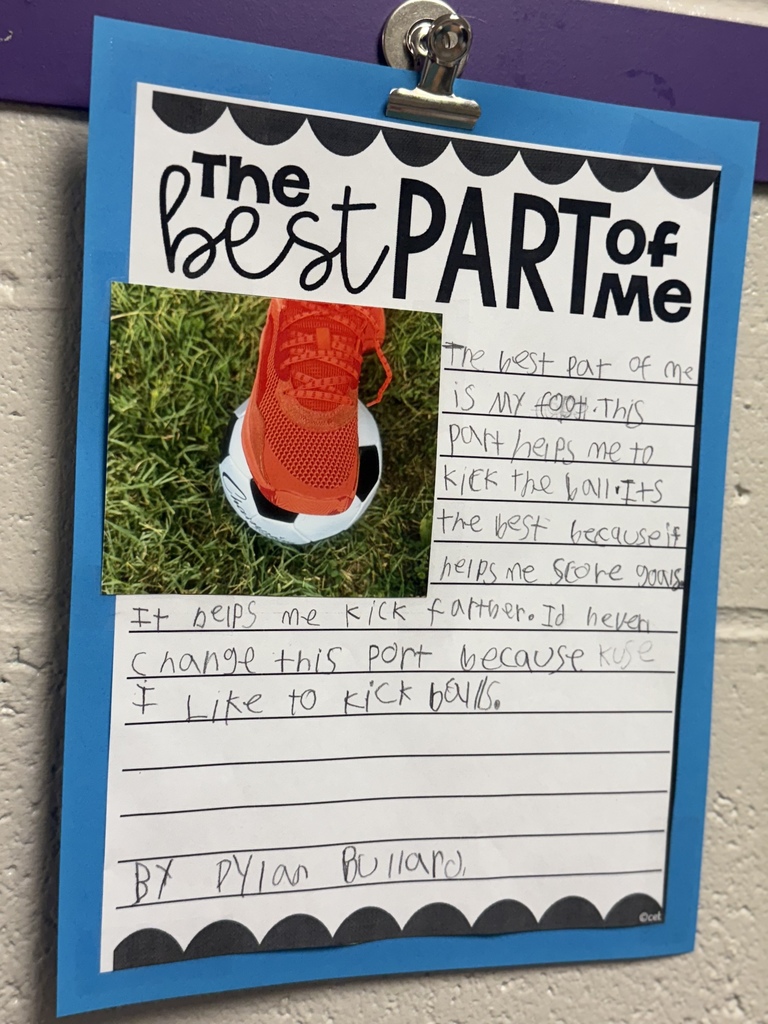 The best PART of Me
The best Part of me
is my foot. This
part helps me to
kick the ball. Its
the best because it
helps me score goals.
It helps me kick farther. Id never
change this part because
I Like to kick balls.
By Dylan Bullard.
©cet